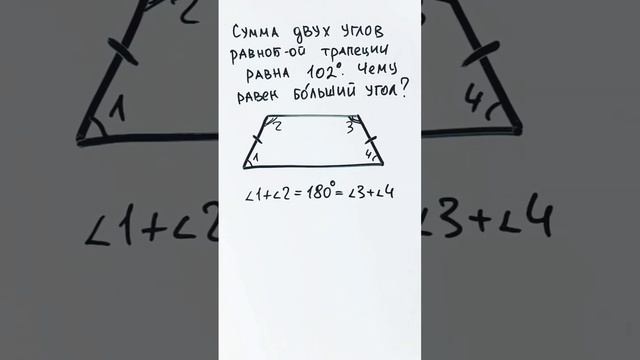 Сумма двух углов
равноб-ой трапеции
равна 102°. Чему
равен больший угол?
2 3
1 4
∠1+∠2=180°=∠3+∠4
2
1 4
∠1+∠2 ∠3+∠4